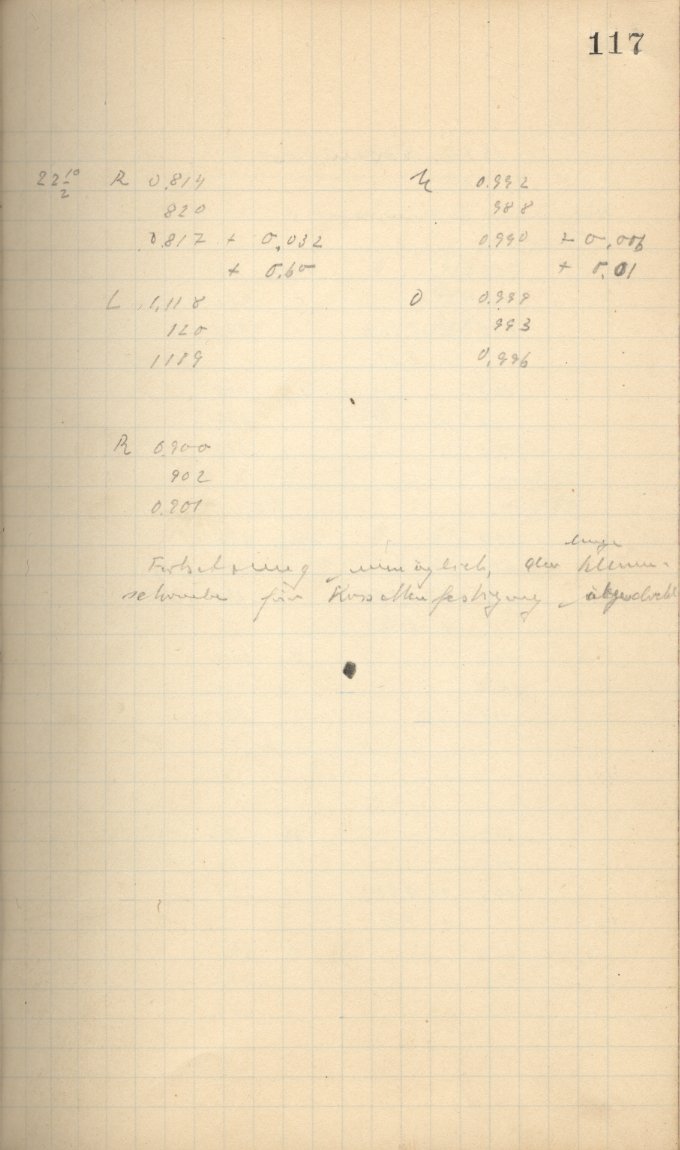 117
22 1/2° R 0,814 U 0.992
820 988
0.817 + 0,032 0.990 + 0,006
+ 0,60 + 0,01
L 1,118 O 0.999
120 993
1119 0,996
R 0,900
902
0.901
Fortsetzung unmöglich, da
schraube für Kassettenfestigung abgedreht